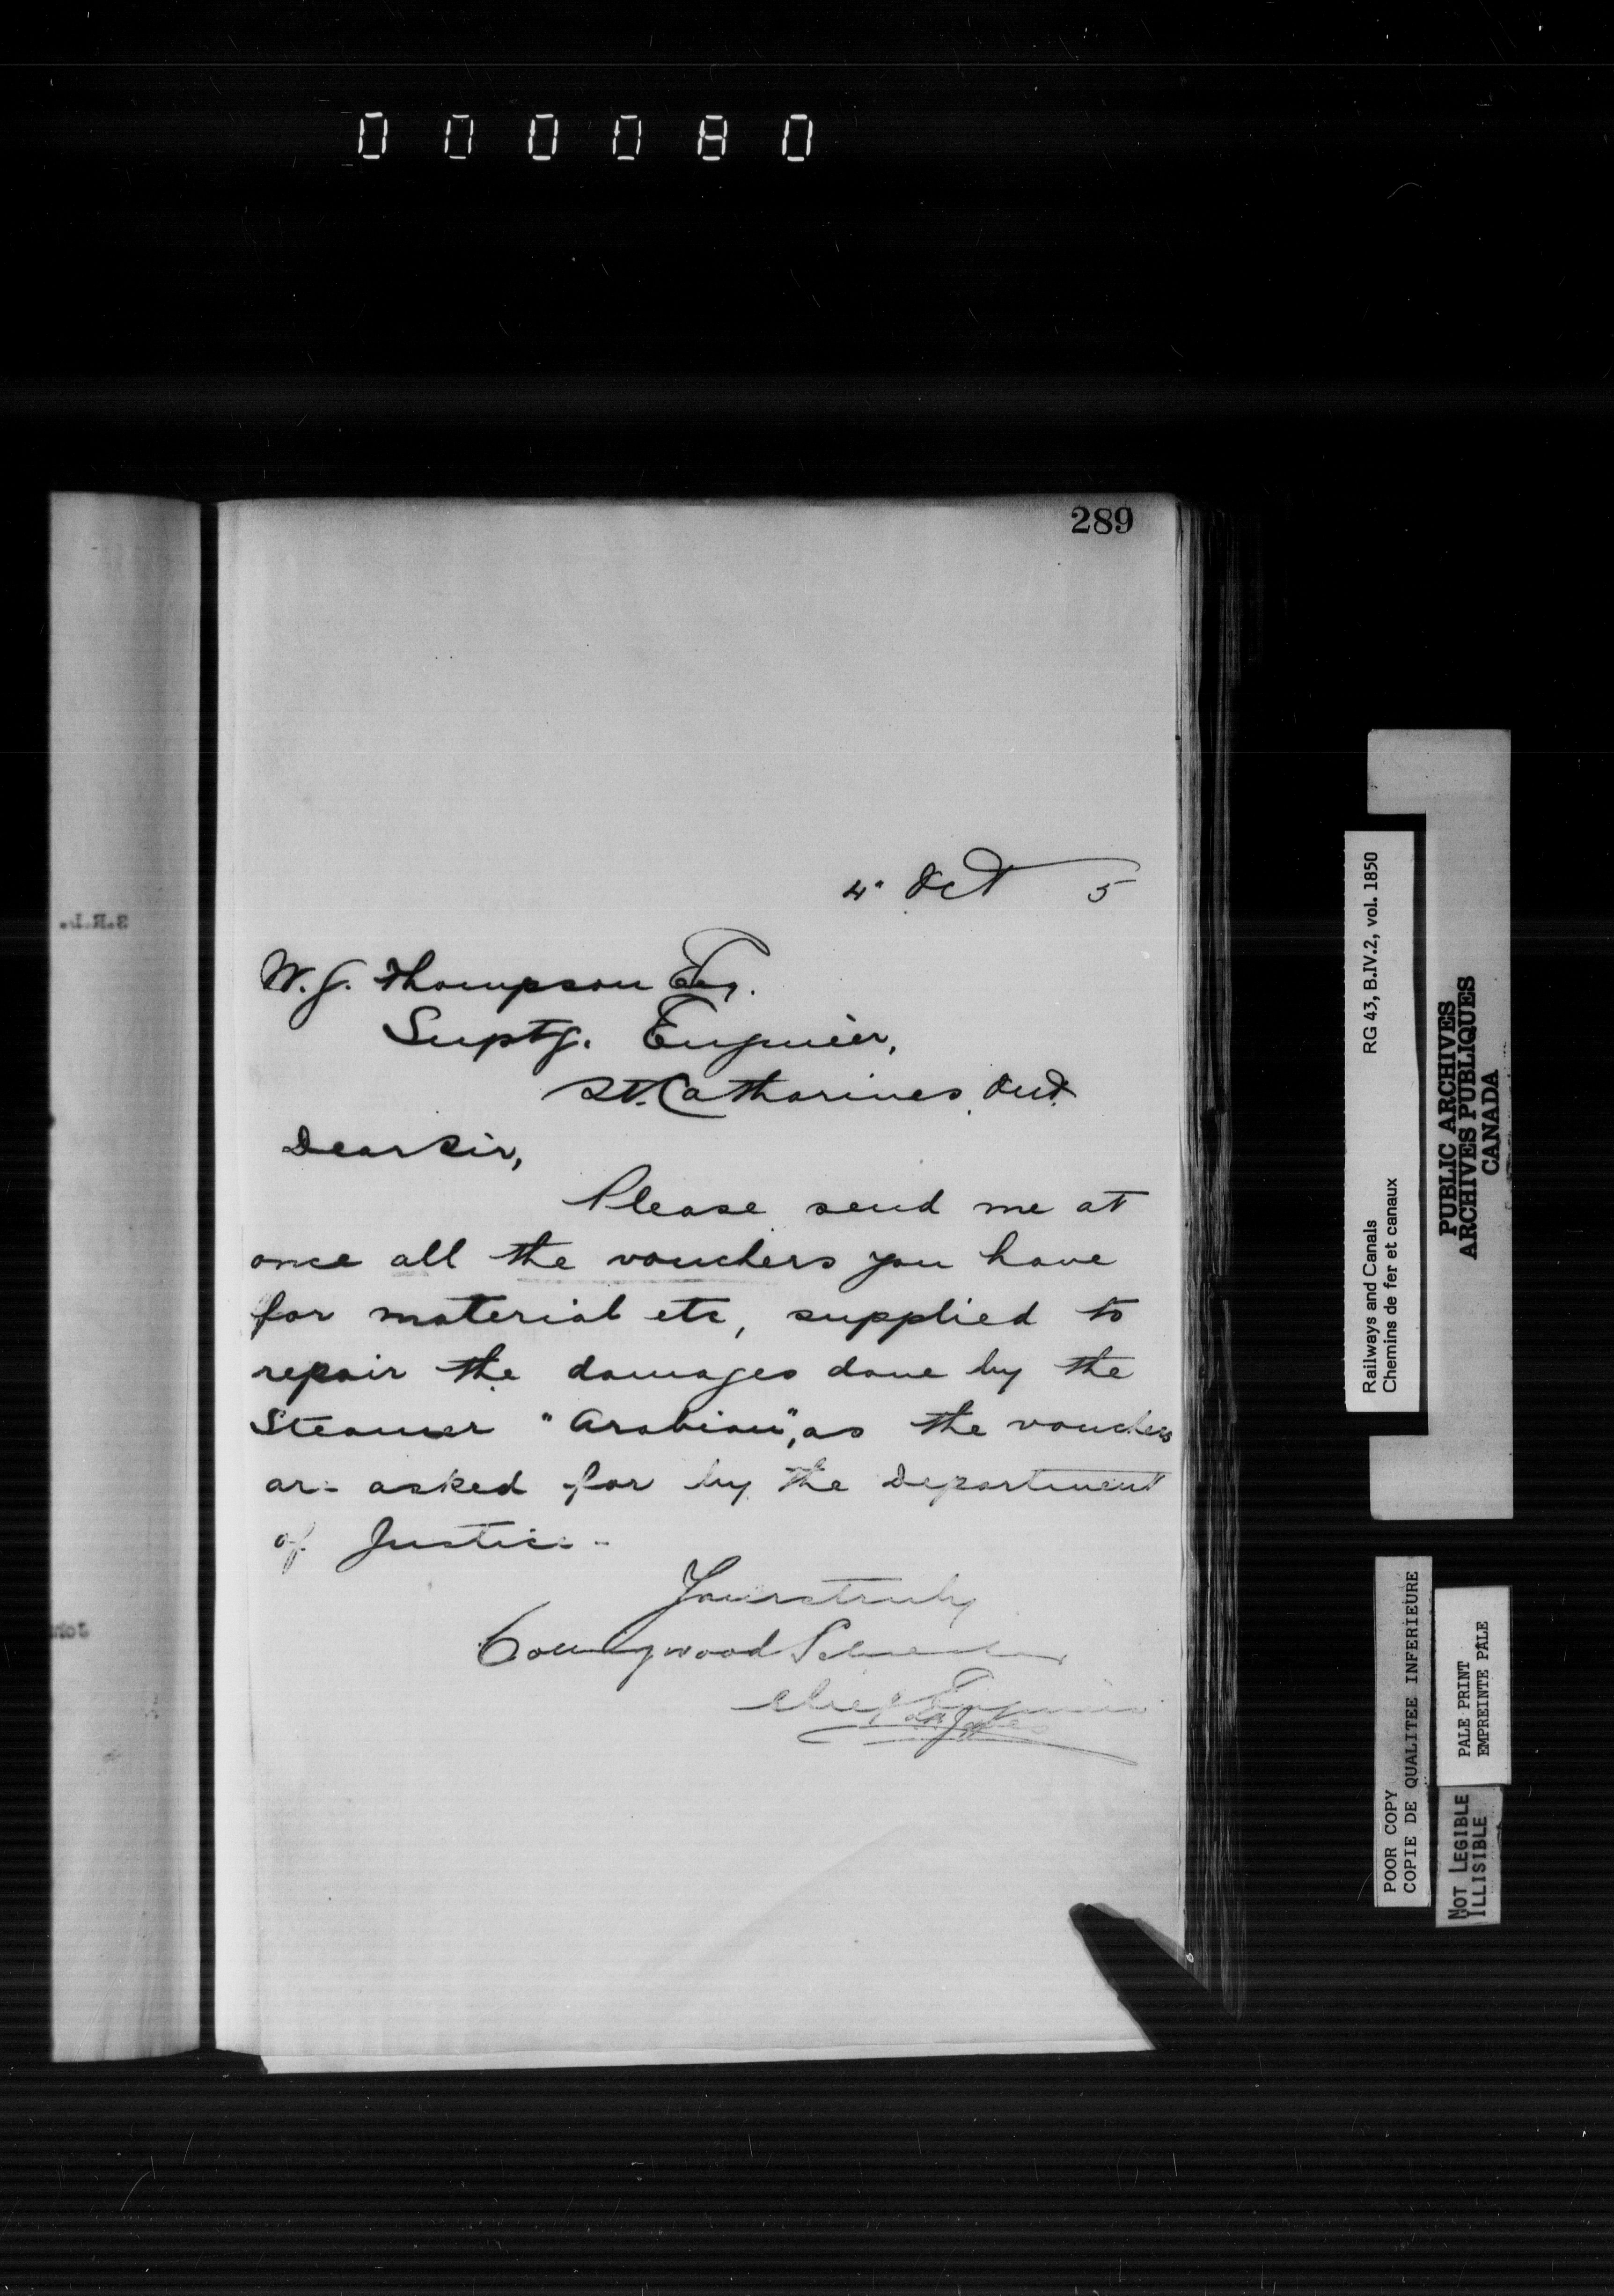 000080
289
4" Oct 5
W. G. Thompson Esq.
Suptg. Engineer,
St. Catharines, Ont.
Dear Sir,
Please send me at
once all the vouchers you have
for material etc, supplied to
repair the damages done by the
Steamer "Arabian", as the vouchers
are asked for by the Department
of Justice.
Yours truly
Collingwood Schreiber
Chief Engineer
S.R.L.
John
Railways and Canals RG 43, B.IV.2, vol. 1850
Chemins de fer et canaux
PUBLIC ARCHIVES
ARCHIVES PUBLIQUES
CANADA
POOR COPY
COPIE DE QUALITEE INFERIEURE
PALE PRINT
EMPREINTE PALE
NOT LEGIBLE
ILLISIBLE